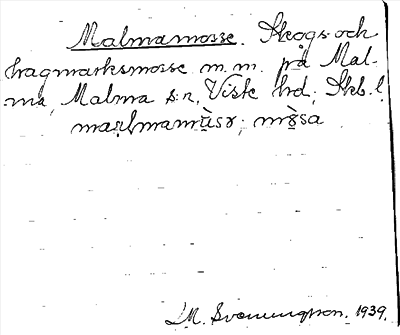 Malmamosse. Skogs- och
hagmarksmosse m. m. på Mal-
ma, Malma s:n, Viste hd, Skb. l.
M. Svenungsson. 1939.